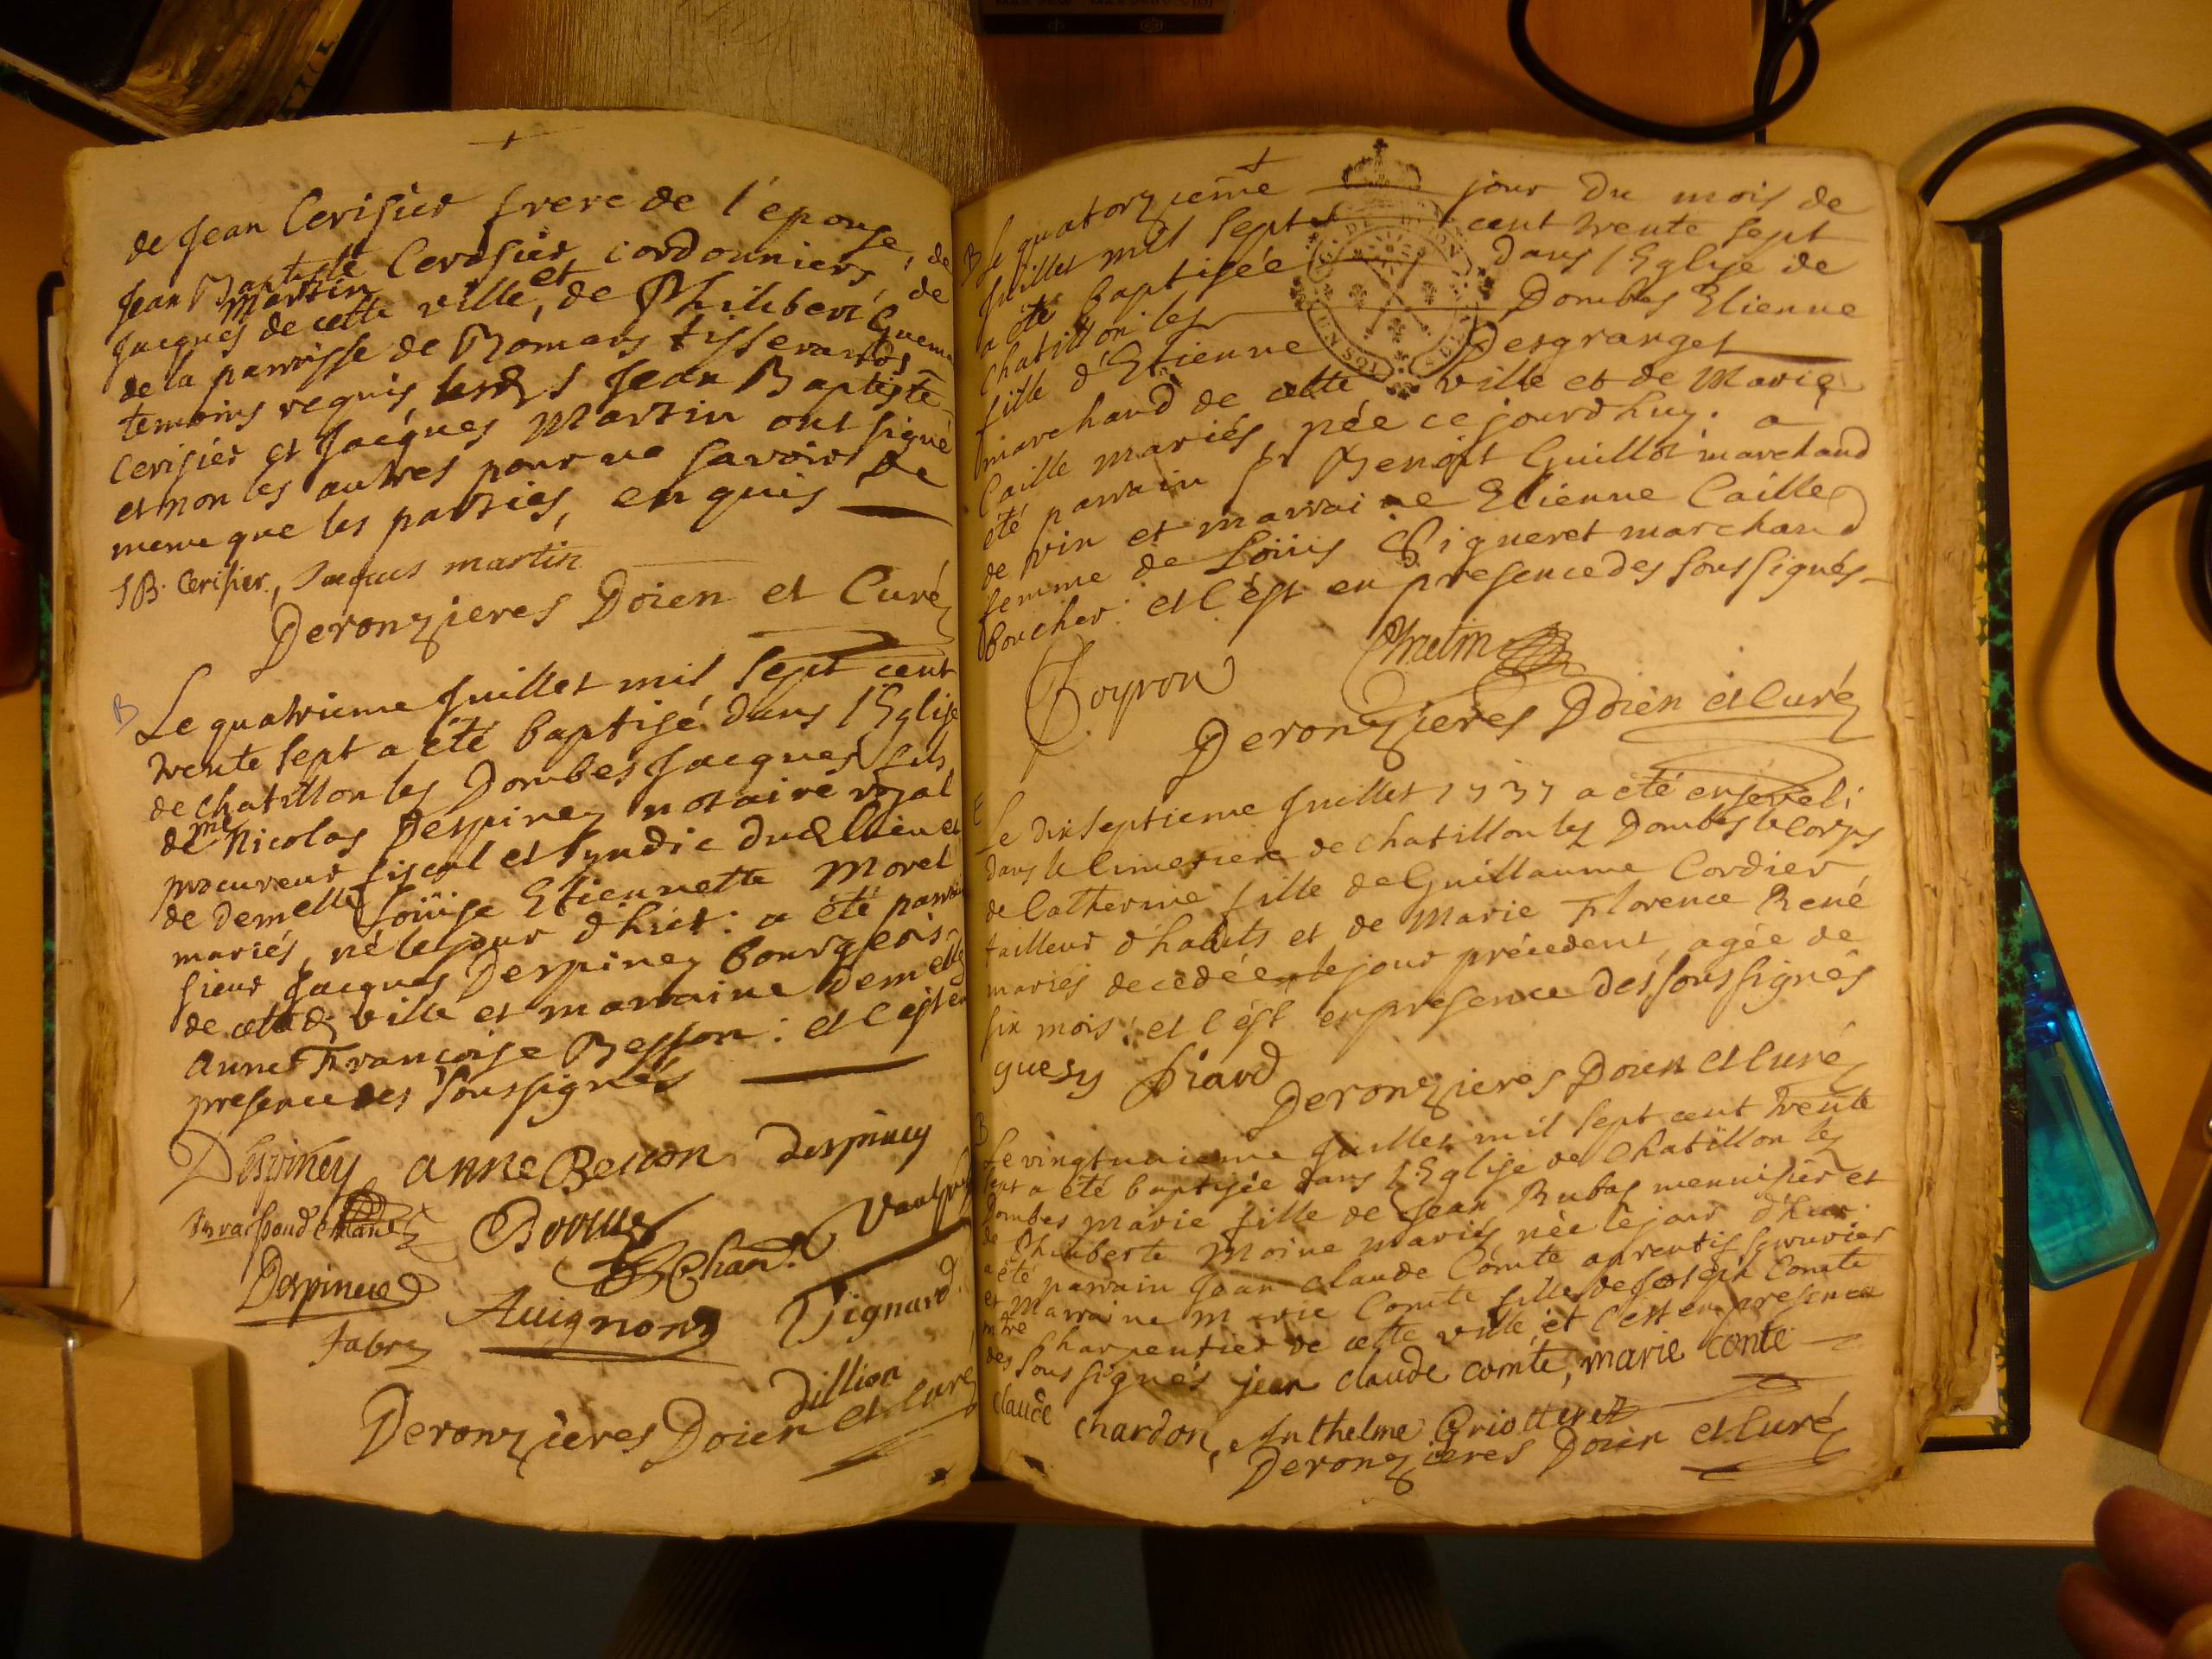 de Jean Cerisier frere de l'epouse, de
Jean Baptiste Cerisier, cordonniers, de
Jacques Martin de cette ville, et de Philibert Guene
de la parroisse de Romans tisserands
temoins requis lesd s Jean Baptiste
Cerisier et Jacques Martin ont signé
et non les autres pour ne savoir de
meme que les parties, enquis
JB. Cerisier, Jaques martin
Deronzieres Doien et Curé
B Le quatrieme Juillet mil sept cent
trente sept a été baptisé dans l'Eglise
de chatillon les Dombes Jacques fils
de me Nicolas Despiney notaire royal
procureur fiscal et syndic dud lieu et
de demelle Loüise Etiennette Morel
mariés, né le jour d'hier: a été parrain
sieur Jacques Despiney bourgeois
de cette d ville et marraine demelle
Anne Françoise Besson: et c'est en
presence des soussignés
Despiney anne Besson Despiney
Despiney Avignon Tignard
fabry
Dillion
Deronzieres Doien et curé
B Le quatorzieme jour du mois de
Juillet mil sept cent trente sept
a été baptisée dans l'Eglise de
Chatillon les Dombes Etienne
fille d'Etienne Desgranges
marchand de cette ville et de Marie
Caille mariés, née ce jourdhuy. a
été parrain sr Benoit Guillot marchand
de vin et marraine Etienne Caille
femme de Loüis Pigneret marchand
boucher: et c'est en presence des soussignés
UN SOL
Poyron Chretin
Deronzieres Doien et Curé
E Le dixseptieme Juillet 1737 a été enseveli
dans le Cimetiere de chatillon les Dombes le corps
de Catherine fille de Guillaume Cordier
tailleur d'habits et de Marie Florence René
mariés decedée le jour précédent, agée de
six mois: et c'est en presence des soussignés
guesy Siard
Deronzieres Doien et Curé
B Le vingtunieme Juillet mil sept cent trente
sept a été baptisée dans l'Eglise de Chatillon les
Dombes marie fille de Jean Rubas mennisier et
de Philiberte Moine mariés née le jour d'hier:
a été parrain Jean Claude Comte aprentif serrurier
et Marraine Marie Comte fille de Joseph Comte
mtre charpentier de cette ville, et c'est en presence
des soussignés jean claude comte, marie conte
claude chardon, Anthelme Griotteret
Deronzieres Doien et Curé